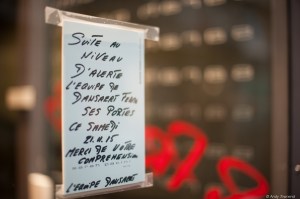 SUITE AU
NIVEAU
D'ALERTE
L'ÉQUIPE DE
DANSAERT FERME
SES PORTES
CE SAMEDI
21.11.15
MERCI DE VOTRE
COMPRÉHENSION
L'ÉQUIPE DANSAERT